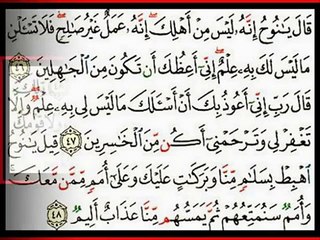 قَالَ يَـٰنُوحُ إِنَّهُۥ لَيْسَ مِنْ أَهْلِكَ إِنَّهُۥ عَمَلٌ غَيْرُ صَـٰلِحٍ فَلَا تَسْـَٔلْنِ
مَا لَيْسَ لَكَ بِهِۦ عِلْمٌ إِنِّىٓ أَعِظُكَ أَن تَكُونَ مِنَ ٱلْجَـٰهِلِينَ ٤٦
قَالَ رَبِّ إِنِّىٓ أَعُوذُ بِكَ أَنْ أَسْـَٔلَكَ مَا لَيْسَ لِى بِهِۦ عِلْمٌ وَإِلَّا
تَغْفِرْ لِى وَتَرْحَمْنِىٓ أَكُن مِّنَ ٱلْخَـٰسِرِينَ ٤٧ قِيلَ يَـٰنُوحُ
ٱهْبِطْ بِسَلَـٰمٍ مِّنَّا وَبَرَكَـٰتٍ عَلَيْكَ وَعَلَىٰٓ أُمَمٍ مِّمَّن مَّعَكَ
وَأُمَمٌ سَنُمَتِّعُهُمْ ثُمَّ يَمَسُّهُم مِّنَّا عَذَابٌ أَلِيمٌ ٤٨